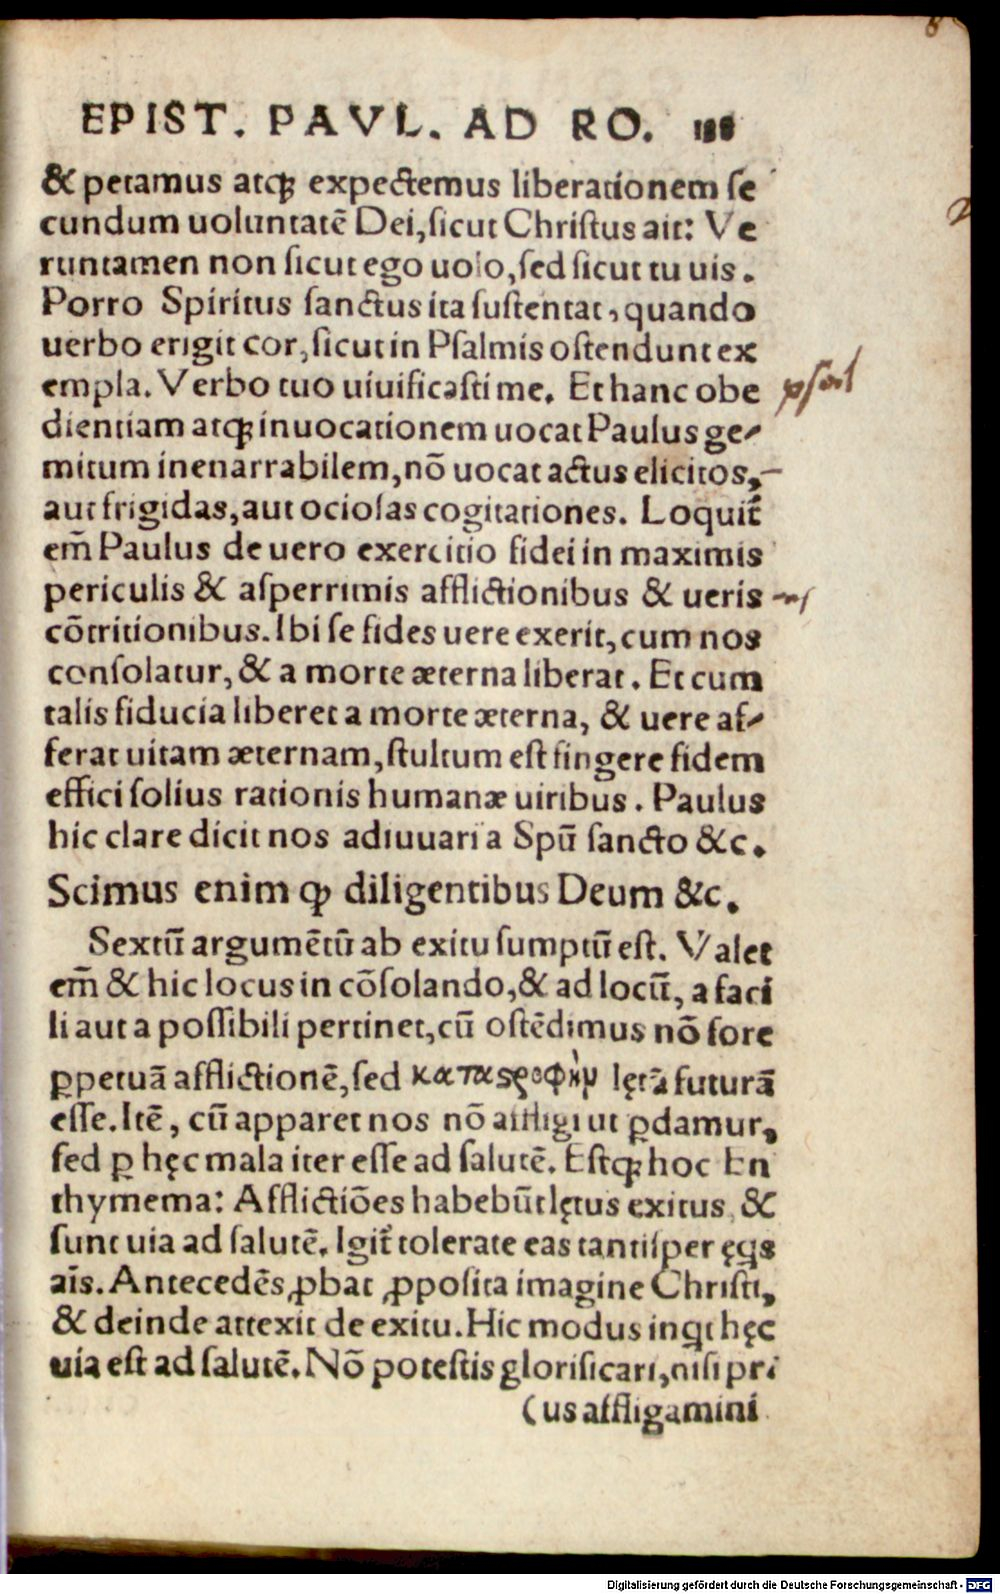 EPIST. PAVL. AD RO.
& petamus atqꝫ expectemus liberationem ſe
cundum uoluntatē Dei, ſicut Chriſtus ait: Ve
runtamen non ſicut ego uolo, ſed ſicut tu uis.
Porro Spiritus ſanctus ita ſuſtentat, quando
uerbo erigit cor, ſicut in Pſalmis oſtendunt ex
empla. Verbo tuo uiuificaſti me. Et hanc obe
psal
dientiam atqꝫ inuocationem uocat Paulus ge-
mitum inenarrabilem, nō uocat actus elicitos,
aut frigidas, aut ocioſas cogitationes. Loquit᷑
em̄ Paulus de uero exercitio fidei in maximis
periculis & aſperrimis afflictionibus & ueris
cōtritionibus. Ibi ſe fides uere exerit, cum nos
conſolatur, & a morte æterna liberat. Et cum
talis fiducia liberet a morte æterna, & uere af-
ferat uitam æternam, ſtultum eſt fingere fidem
effici ſolius rationis humanæ uiribus. Paulus
hic clare dicit nos adiuuari a Spū ſancto &c.
Scimus enim ꝙ diligentibus Deum &c.
Sextū argumētū ab exitu ſumptū eſt. Valet
em̄ & hic locus in cōſolando, & ad locū, a faci
li aut a poſſibili pertinet, cū oſtēdimus nō fore
ꝑpetuā afflictionē, ſed καταϛροφὴν lętā futurā
eſſe. Itē, cū apparet nos nō affligi ut ꝑdamur,
ſed ꝑ hęc mala iter eſſe ad ſalutē. Eſtqꝫ hoc En
thymema: Afflictiōes habebūt lętus exitus, &
ſunt uia ad ſalutē. Igit᷑ tolerate eas tantiſper ęq̄s
aīs. Antecedēs ꝓbat ꝓpoſita imagine Chriſti,
& deinde attexit de exitu. Hic modus inqͥt hęc
uia eſt ad ſalutē. Nō poteſtis glorificari, niſi pri
(us affligamini
Digitalisierung gefördert durch die Deutsche Forschungsgemeinschaft - DFG